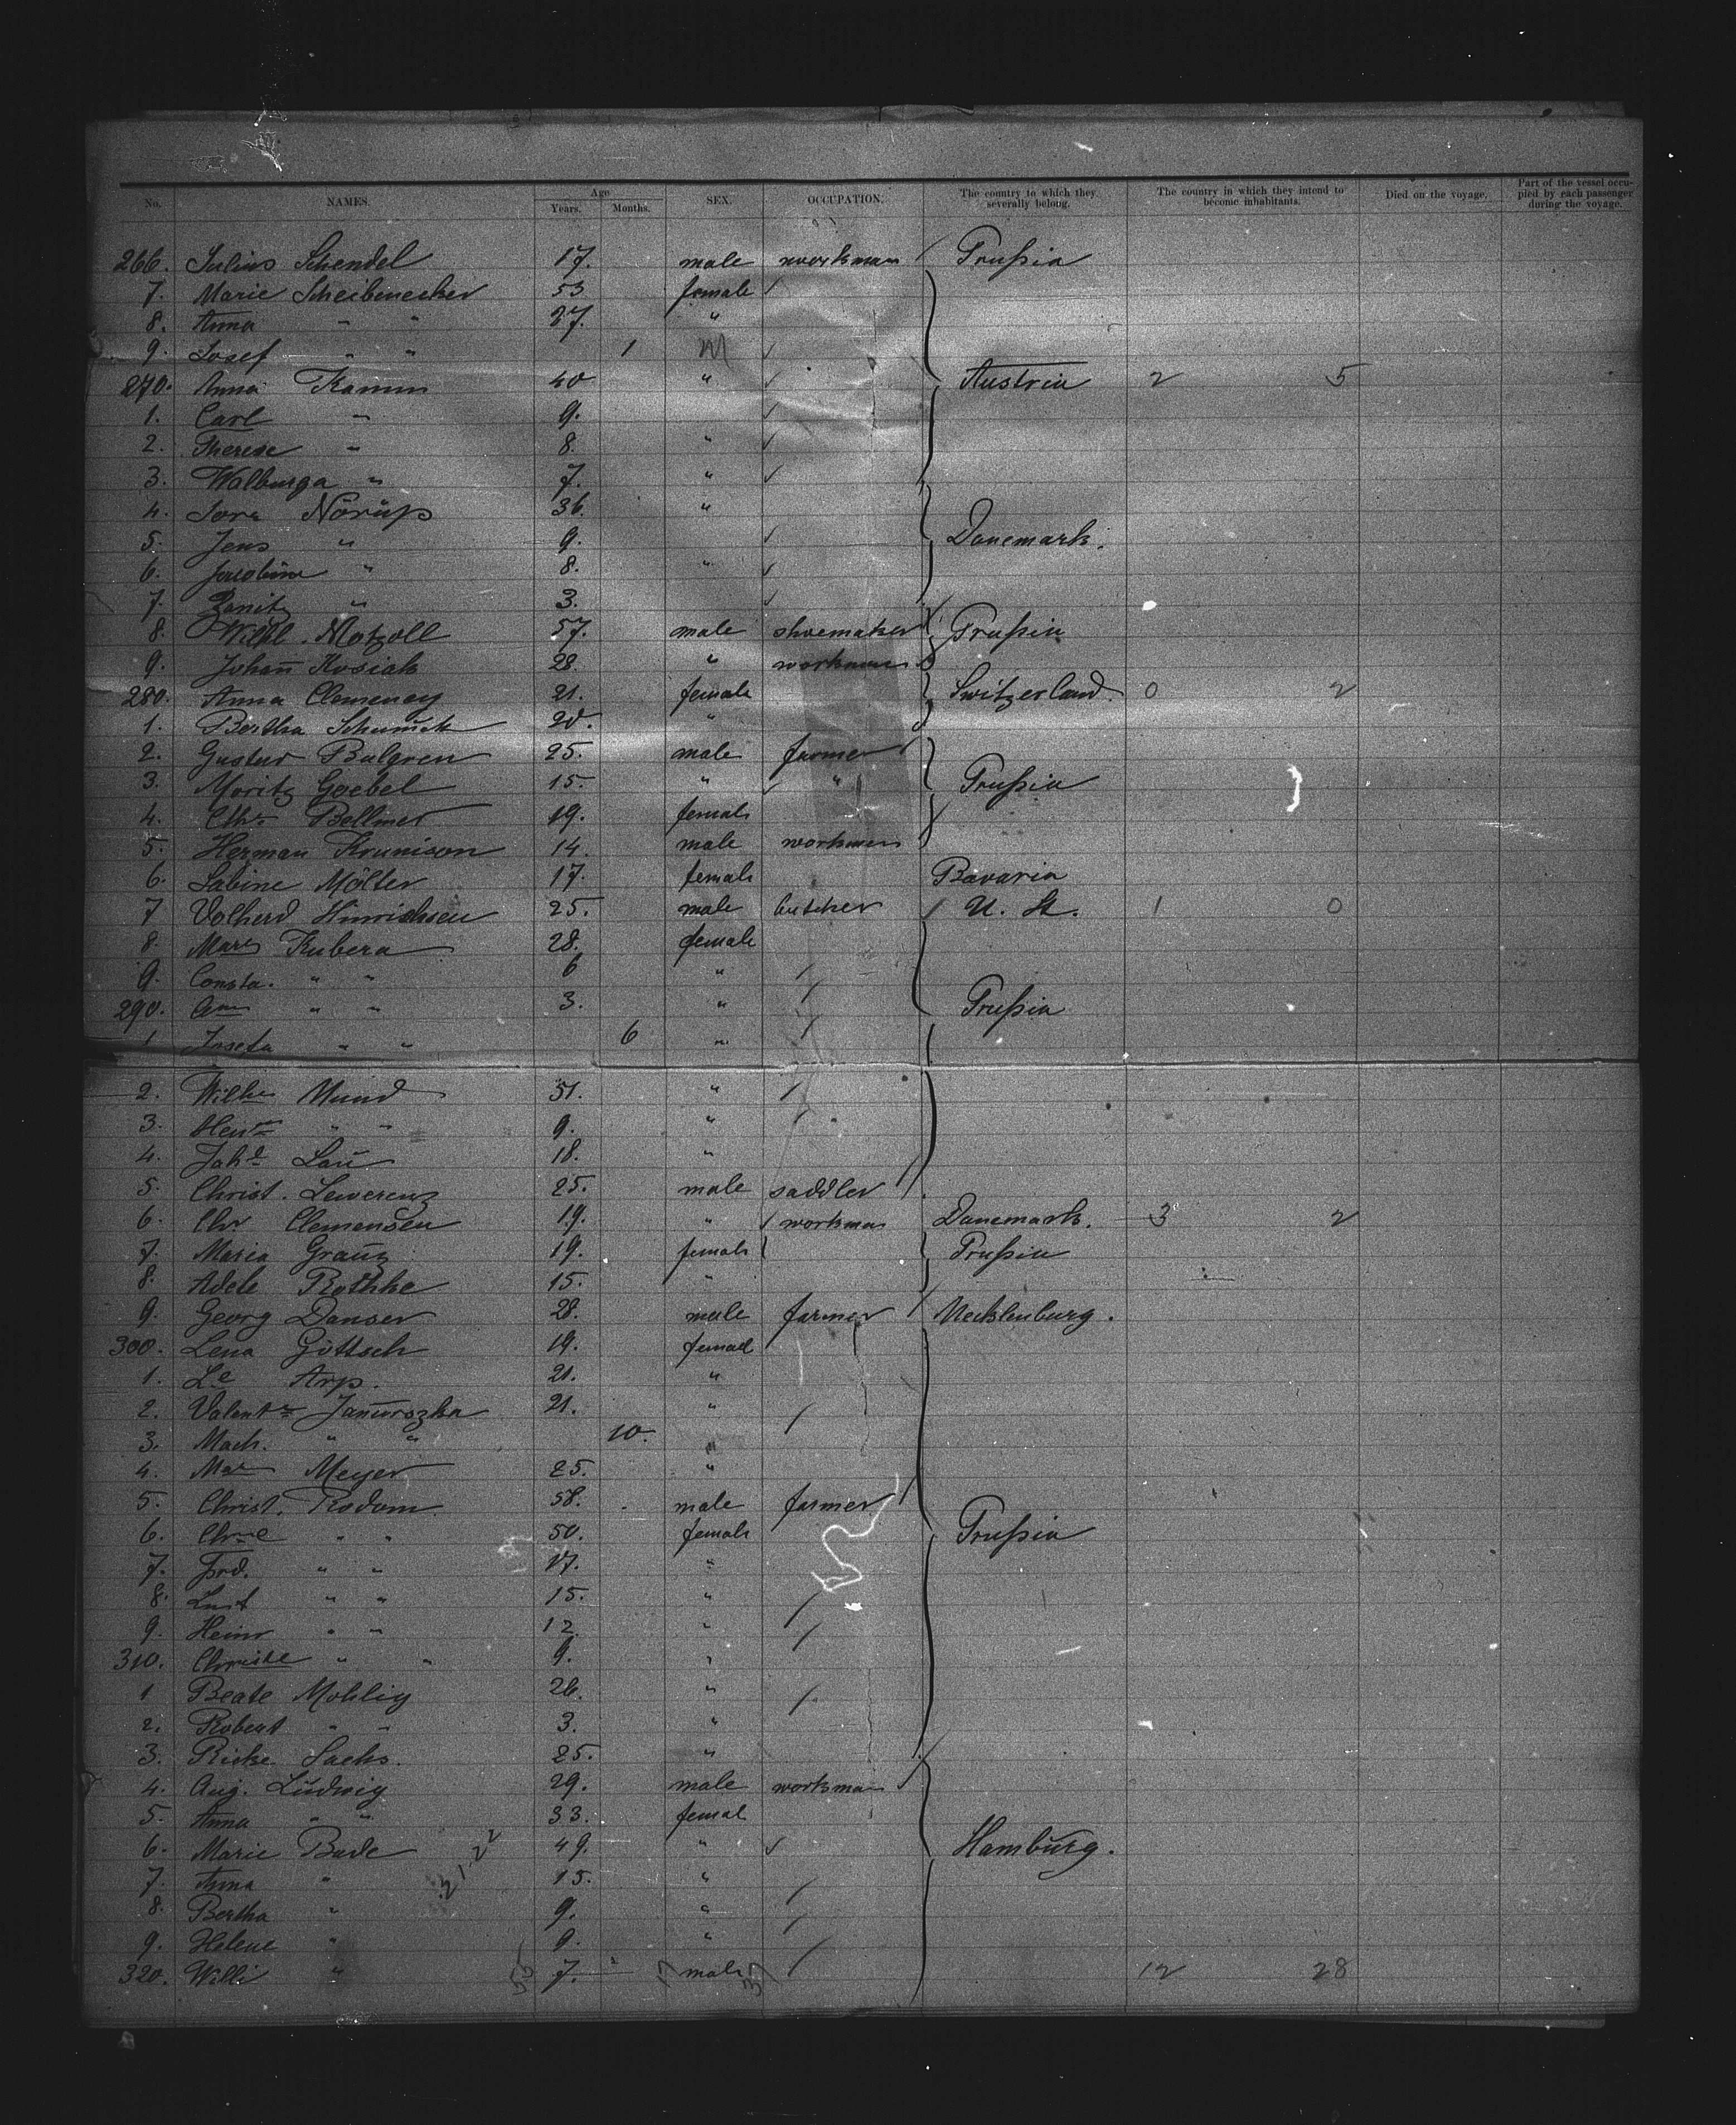 No. NAMES. Age Years. Months. SEX. OCCUPATION. The country to which they severally belong. The country in which they intend to become inhabitants. Died on the voyage. Part of the vessel occupied by each passenger during the voyage.
266. Julius Schendel 17. male workman Prußia
7. Marie Scheibenecker 53 female
8. Anna " " 27. "
9. Josef " " 1 M
270. Anna Kamm 40 " Austria 2 5
1. Carl " 9.
2. Therese " 8. "
3. Walburga " 7. "
4. Nörüp 36. "
5. Jens " 9. Danemark.
6. Jacobine " 8. "
7. " 3.
8. Wilhl. Motzoll 57. male shoemaker Prußia
9. Johañ Kosiak 28. " workman
280. Anna Clemency 21. female Switzerland 0 2
1. Bertha 20. "
2. Gustav Balgren 25. male farmer
3. Moritz Goebel 15. " " Prußia
4. Bellmer 19. female
5. Herman Krunison 14. male workman
6. Sabine Mölter 17. female Bavaria
7 Volkerd Hinrichsen 25. male butcher U. St. 1 0
8. Kubera 28. female
9. Consta. " " 6 "
290. " " 3. " Prußia
1 Josefa " " 6 "
2. Wilhe Mund 51. "
3. " " 9. "
4. Lau 18. "
5. Christ. Lewerenz 25. male saddler
6. Chr Clemensen 19. " workman Danemark. 3 2
7. Maria Grauz 19. female Prußia
8. Adele Rothke 15. "
9. Georg Danser 28. male farmer Mecklenburg.
300. Lena Göttsch 19. femael
1. Le Arp. 21. "
2. Januroszka 21. "
3. Mach. " " 10. "
4. Meyer 25. "
5. Christ. Rodom 58. male farmer
6. " " 50. female Prußia
7. Frd. " " 17. "
8. " " 15. "
9. Heinr " " 12. "
310. " " 9. "
1 Beate Mohlig 26. "
2. Robert " " 3. "
3. Ricke Sachs. 25. "
4. Aug. Ludwig 29. male workman
5. Anna " " 33. femal
6. Marie Bade 49. " Hamburg.
7. Anna " 15. "
8. Bertha " 9. "
9. Helene " 9. "
320. Willi " 7. male 12 28